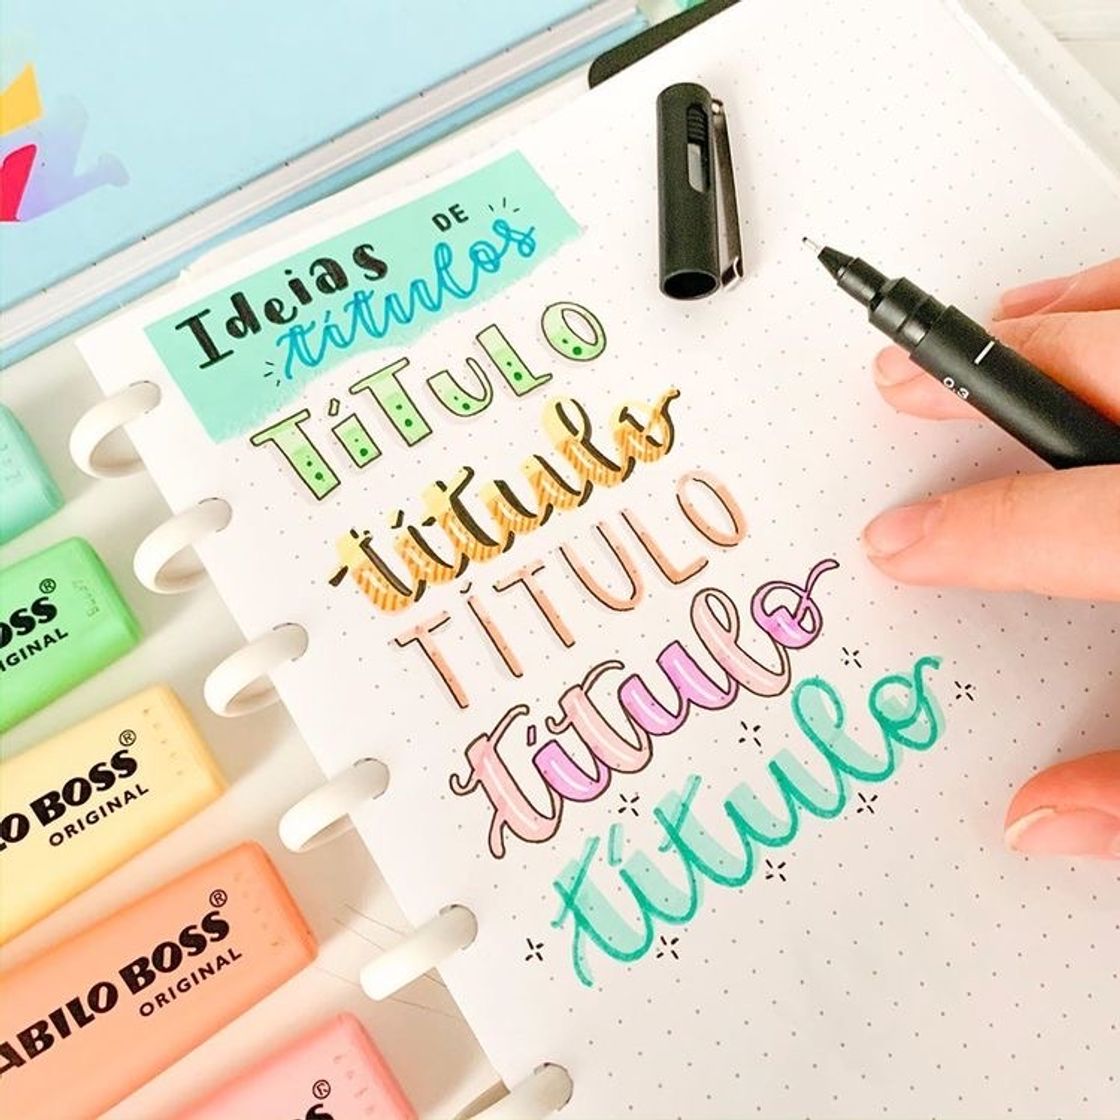 Ideias DE
títulos
TÍTULO
título
TÍTULO
título
título
0.3
OSS®
IGINAL
LO BOSS®
ORIGINAL
ABILO BOSS®
ORIGINAL
SS®